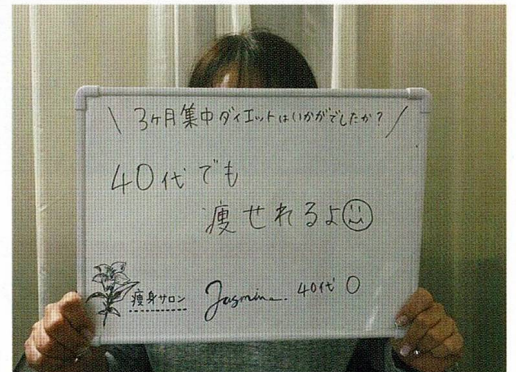 \ 3ヶ月集中ダイエットはいかがでしたか? /
40代でも
痩せれるよ
痩身サロン Jasmine. 40代 O